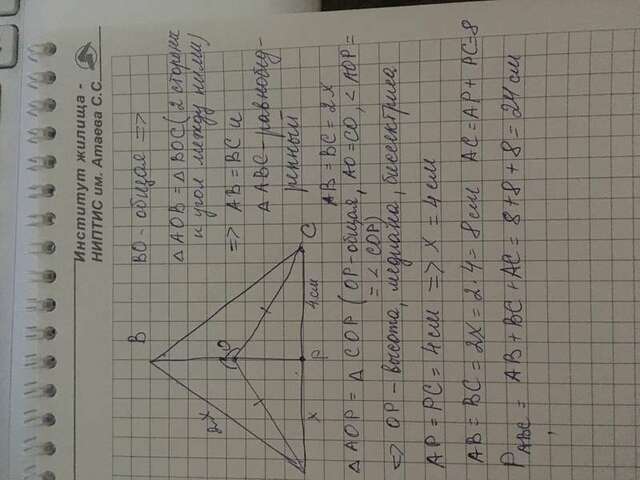 Институт жилища -
НИПТИС им. Атаева С.С.
B
BO - общая =>
△AOB = △BOC (2 стороны
и угол между ними)
2x
O
=> AB = BC и
△ABC - равнобед-
ренный
x
P
4см
C
AB = BC = 2x
△AOP = △COP (OP-общая, AO=CO, <AOP =
= <COP)
=> OP - высота, медиана, биссектриса
AP = PC = 4см => x = 4см
AB = BC = 2x = 2·4 = 8см AC = AP + PC = 8
P ABC = AB + BC + AC = 8 + 8 + 8 = 24 см